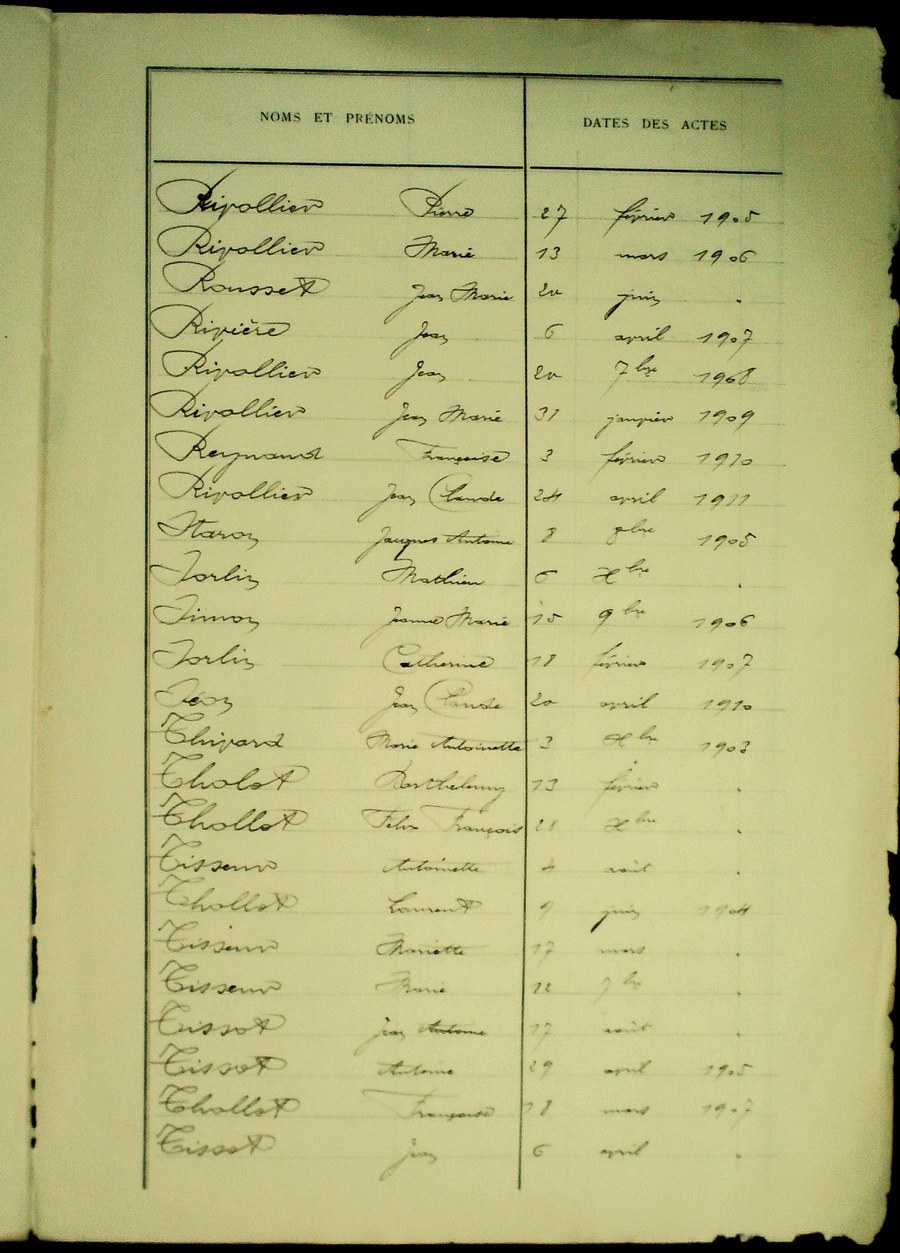 NOMS ET PRÉNOMS DATES DES ACTES
Rivollier Pierre 27 février 1905
Rivollier Marie 13 mars 1906
Rousset Jean Marie 20 juin "
Rivière Jean 6 avril 1907
Rivollier Jean 20 7bre 1908
Rivollier Jean Marie 31 janvier 1909
Reynaud Françoise 3 février 1910
Rivollier Jean Claude 24 avril 1911
Staron Jacques Antoine 8 8bre 1905
Sorlin Mathieu 6 Xbre "
Simon Jeanne Marie 15 9bre 1906
Sorlin Catherine 18 février 1907
Séon Jean Claude 20 avril 1910
Thivard Marie Antoinette 3 Xbre 1903
Tholot Barthélemy 13 février "
Thollot Félix François 28 Xbre "
Tisseur Antoinette 4 août "
Thollot Laurent 9 juin 1904
Tisseur Mariette 17 mars "
Tisseur Marie 12 7bre "
Tissot jean Antoine 17 août "
Tissot Antoine 29 avril 1905
Thollot Françoise 18 mars 1907
Tissot Jean 6 avril "